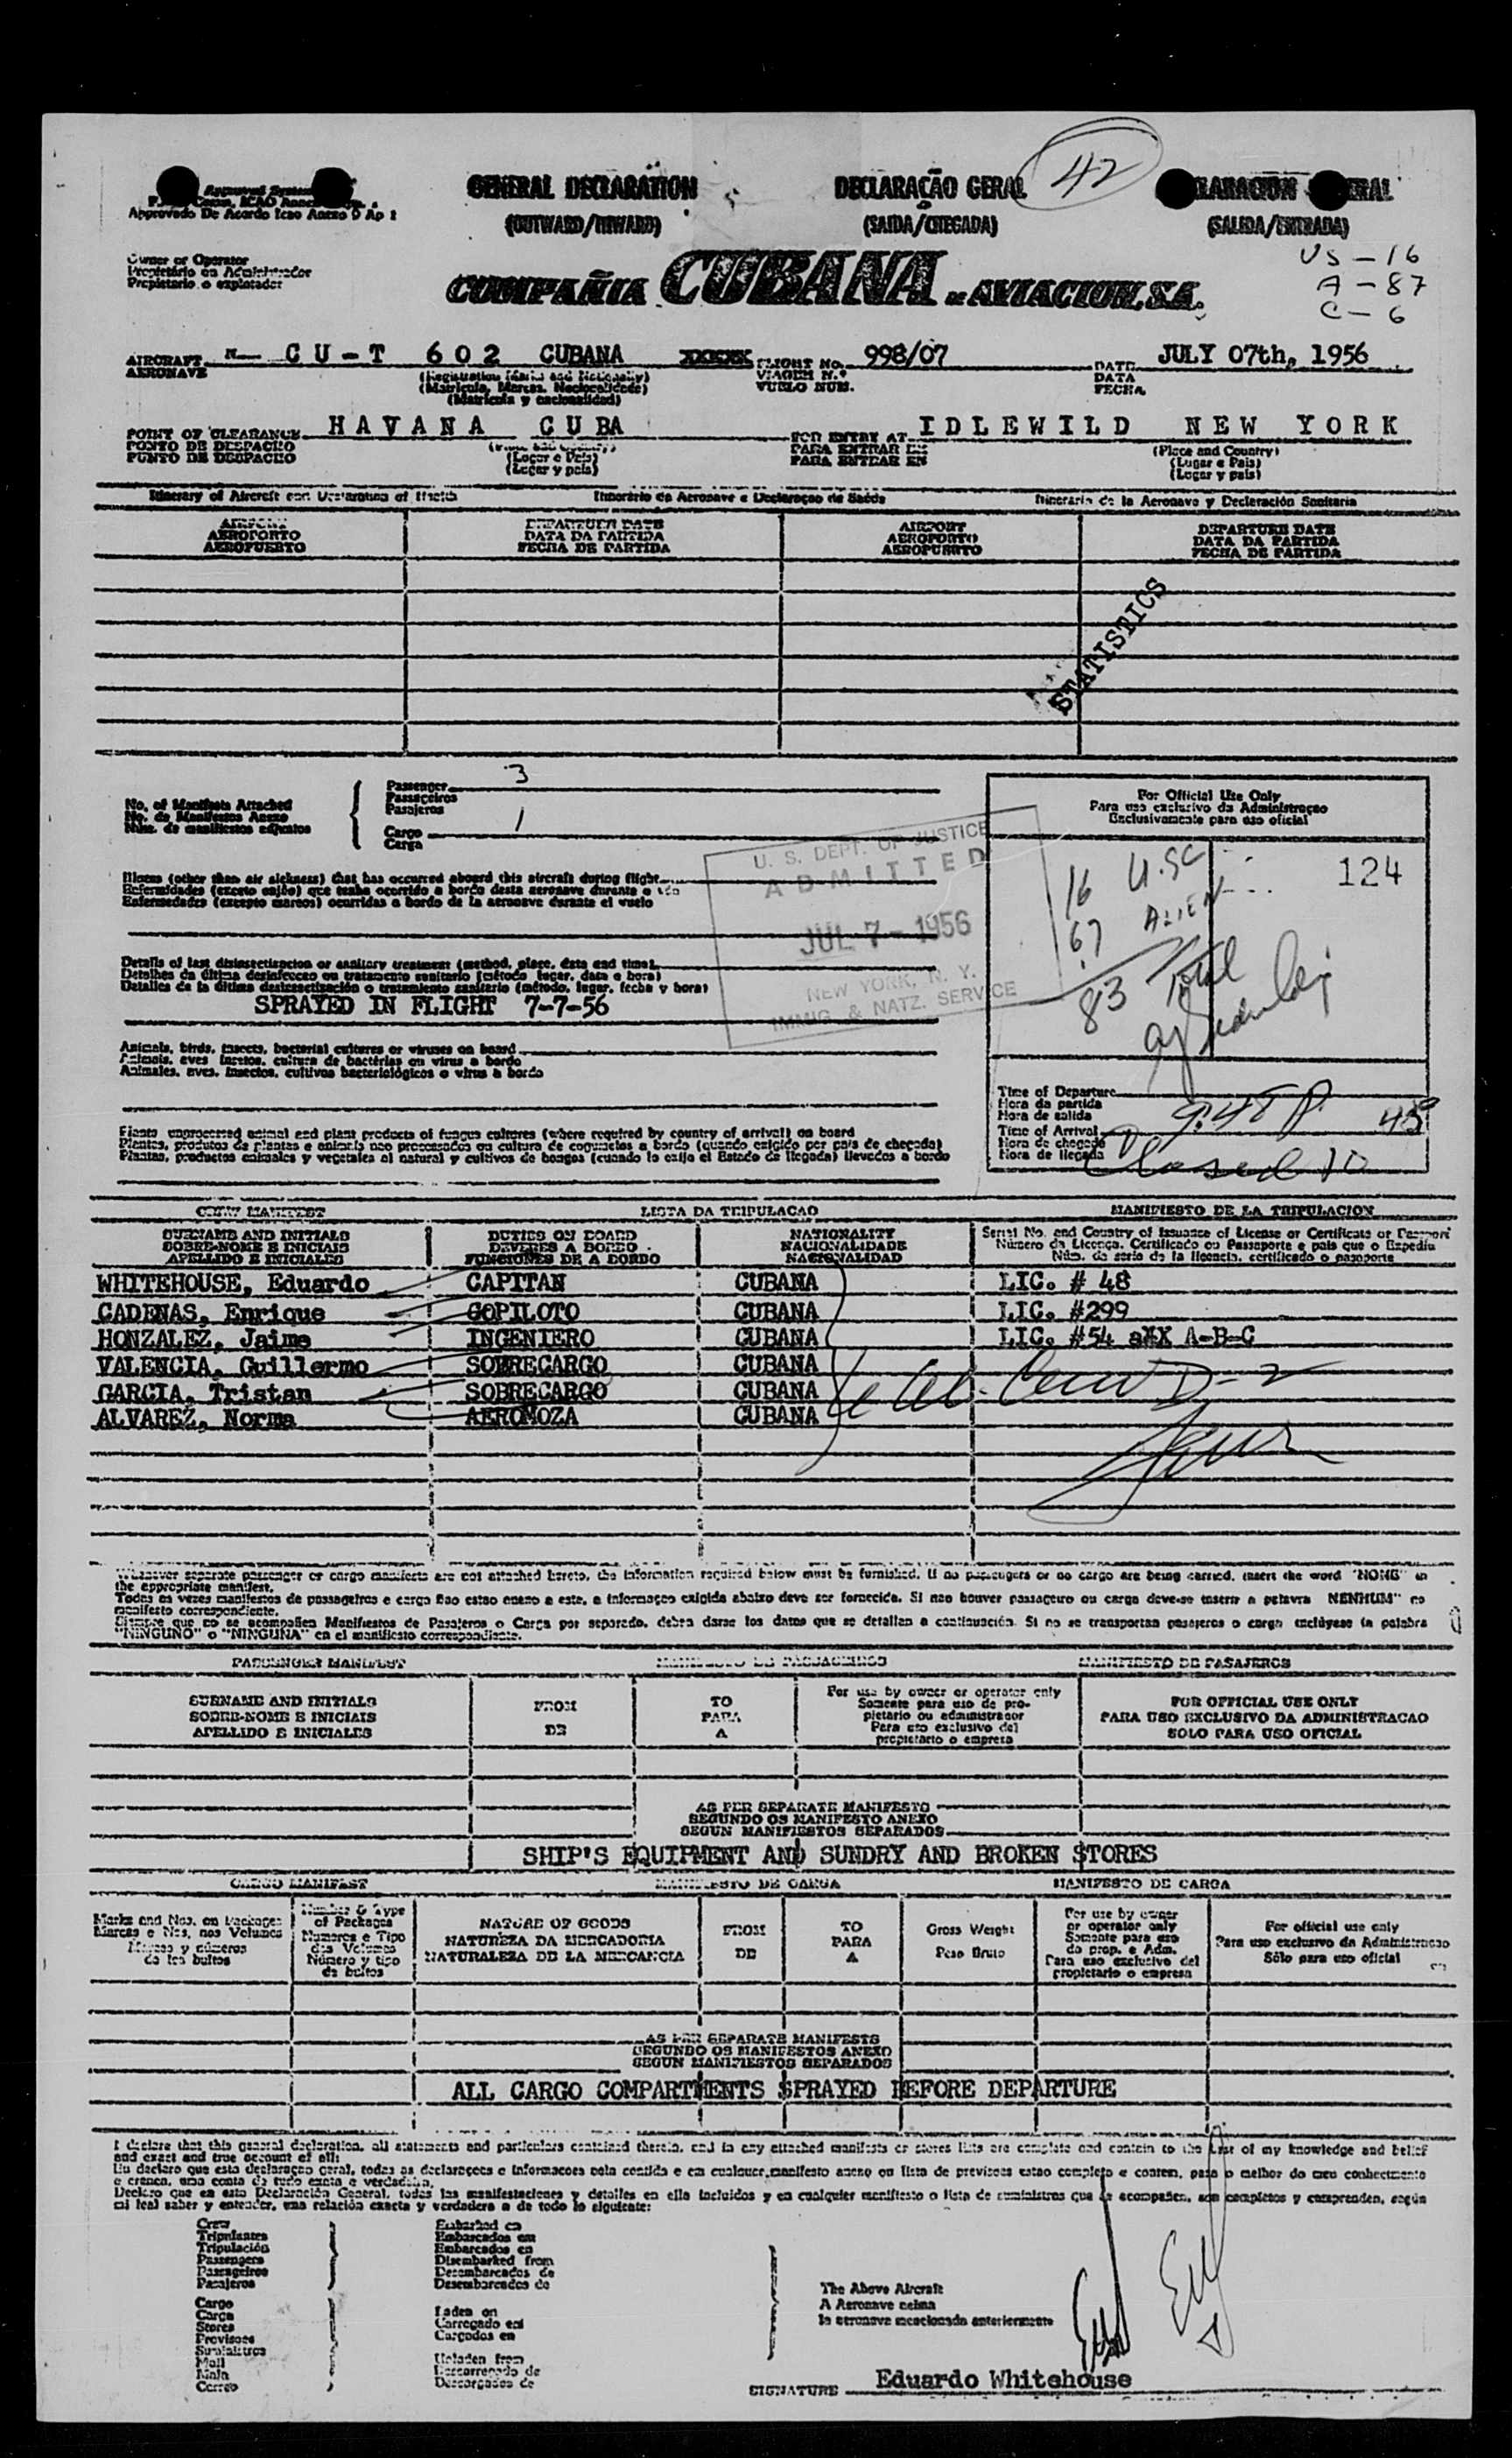 Approved System
ICAO Annex
Approvado De Acordo Icao Anexo 9 Ap 1
GENERAL DECLARATION
(OUTWARD/INWARD)
DECLARAÇÃO GERAL
(SAIDA/CHEGADA)
42
(SALIDA/ENTRADA)
Owner or Operator
Propietário ou Administrador
Propietario o explotador
COMPAÑIA CUBANA DE AVIACION, S.A.
US - 16
A - 87
C - 6
AIRCRAFT CU-T 602 CUBANA
AERONAVE
(Registration Marks and Nationality)
(Matricula, Marcas, Nacionalidade)
(Matricula y nacionalidad)
FLIGHT No. 998/07
VIAGEM N.º
VUELO NUM.
DATE JULY 07th, 1956
DATA
FECHA
POINT OF CLEARANCE HAVANA CUBA
PONTO DE DESPACHO
PUNTO DE DESPACHO
(Lugar e Pais)
(Lugar y pais)
FOR ENTRY AT IDLEWILD NEW YORK
PARA ENTRAR EM
PARA ENTRAR EN
(Place and Country)
(Lugar e Pais)
(Lugar y pais)
Itinerary of Aircraft and Declaration of Health
Itinerário da Aeronave e Declaraçao de Saúde
Itinerario de la Aeronave y Declaración Sanitaria
AIRPORT
AEROPORTO
AEROPUERTO
DEPARTURE DATE
DATA DA PARTIDA
FECHA DE PARTIDA
AIRPORT
AEROPORTO
AEROPUERTO
DEPARTURE DATE
DATA DA PARTIDA
FECHA DE PARTIDA
STATISTICS
No. of Manifests Attached
No. de Manifestos Anexo
Núm. de manifiestos adjuntos
Passenger 3
Passageiros
Pasajeros
Cargo 1
Carga
For Official Use Only
Para uso exclusivo da Administraçao
Exclusivamente para uso oficial
U. S. DEPT. OF JUSTICE
ADMITTED
JUL 7 - 1956
NEW YORK, N. Y.
IMMIG. & NATZ. SERVICE
16 U.SC
67 ALIEN
83 Total
124
Illness (other than air sickness) that has occurred aboard this aircraft during flight
Enfermidades (exceto enjôo) que tenha ocorrido a bordo desta aeronave durante o vôo
Enfermedades (excepto mareos) ocurridas a bordo de la aeronave durante el vuelo
Details of last disinsectization or sanitary treatment (method, place, date and time)
Detalhes da última desinfeccao ou tratamento sanitario (método, lugar, data e hora)
Detalles de la última desinsectización o tratamiento sanitario (método, lugar, fecha y hora)
SPRAYED IN FLIGHT 7-7-56
Animals, birds, insects, bacterial cultures or viruses on board
Animais, aves, insetos, cultura de bactérias ou virus a bordo
Animales, aves, insectos, cultivos bacteriológicos o virus a bordo
Plants, unprocessed animal and plant products of fungus cultures (where required by country of arrival) on board
Plantas, produtos de plantas e animais nao processados ou cultura de cogumelos a bordo (quando exigido por pais de chegada)
Plantas, productos animales y vegetales al natural y cultivos de hongos (cuando lo exija el Estado de llegada) llevados a bordo
Time of Departure
Hora da partida
Hora de salida
Time of Arrival 9:45 P.
Hora de chegada
Hora de llegada
Closed 10
CREW MANIFEST
LISTA DA TRIPULACAO
MANIFIESTO DE LA TRIPULACION
SURNAME AND INITIALS
SOBRE-NOME E INICIAIS
APELLIDO E INICIALES
DUTIES ON BOARD
DEVERES A BORDO
FUNCIONES DE A BORDO
NATIONALITY
NACIONALIDADE
NACIONALIDAD
Serial No. and Country of Issuance of License or Certificate or Passport
Número da Licença, Certificado ou Passaporte e pais que o Expediu
Núm. de serie de la licencia, certificado o pasaporte
WHITEHOUSE, Eduardo CAPITAN CUBANA LIC. # 48
CADENAS, Enrique COPILOTO CUBANA LIC. #299
HONZALEZ, Jaime INGENIERO CUBANA LIC. #54 a#X A-B-C
VALENCIA, Guillermo SOBRECARGO CUBANA
GARCIA, Tristan SOBRECARGO CUBANA
ALVAREZ, Norma AEROMOZA CUBANA
D-2
Whenever separate passenger or cargo manifests are not attached hereto, the information required below must be furnished. If no passengers or no cargo are being carried, insert the word "NONE" in
the appropriate manifest.
Todas as vezes manifestos de passageiros e carga nao estao anexo a este, a informaçao exigida abaixo deve ser fornecida. Si nao houver passageiro ou carga deve-se inserir a palavra NENHUM" no
manifesto correspondente.
Siempre que no se acompañen Manifiestos de Pasajeros o Carga por separado, debera darse los datos que se detallan a continuación. Si no se transportan pasajeros o carga inclúyase la palabra
"NINGUNO" o "NINGUNA" en el manifiesto correspondiente.
PASSENGER MANIFEST
MANIFESTO DE PASSAGEIROS
MANIFIESTO DE PASAJEROS
SURNAME AND INITIALS
SOBRE-NOME E INICIAIS
APELLIDO E INICIALES
FROM
DE
TO
PARA
A
For use by owner or operator only
Somente para uso de pro-
pietario ou administrador
Para uso exclusivo del
propietario o empresa
FOR OFFICIAL USE ONLY
PARA USO EXCLUSIVO DA ADMINISTRACAO
SOLO PARA USO OFICIAL
AS PER SEPARATE MANIFESTO
SEGUNDO OS MANIFESTO ANEXO
SEGUN MANIFIESTOS SEPARADOS
SHIP'S EQUIPMENT AND SUNDRY AND BROKEN STORES
CARGO MANIFEST
MANIFESTO DE CARGA
MANIFESTO DE CARGA
Marks and Nos. on Packages
Marcas e Nos. nos Volumes
Marcas y números
de los bultos
Number & Type
of Packages
Numeros e Tipo
dos Volumes
Número y tipo
de bultos
NATURE OF GOODS
NATUREZA DA MERCADORIA
NATURALEZA DE LA MERCANCIA
FROM
DE
TO
PARA
A
Gross Weight
Peso Bruto
For use by owner
or operator only
Somente para uso
do prop. e Adm.
Para uso exclusivo del
propietario o empresa
For official use only
Para uso exclusivo da Administracao
Sólo para uso oficial
AS PER SEPARATE MANIFESTS
SEGUNDO OS MANIFESTOS ANEXO
SEGUN MANIFIESTOS SEPARADOS
ALL CARGO COMPARTMENTS SPRAYED BEFORE DEPARTURE
I declare that this general declaration, all statements and particulars contained therein, and in any attached manifests or stores lists are complete and contain to the best of my knowledge and belief
and exact and true account of all:
Eu declaro que esta declaraçao geral, todas as declaraçoes e informacoes nela contida e em cualquer manifesto anexo ou lista de previsoes estao completo e contem, para o melhor do meu conhecimento
e crença, uma conta de tudo exata e verdadeira.
Declaro que en esta Declaración General, todas las manifestaciones y detalles en ella incluidos y en cualquier manifiesto o lista de suministros que se acompañen, son completos y comprenden, según
mi leal saber y entender, una relación exacta y verdadera a de todo lo siguiente:
Crew
Tripulantes
Tripulación
Passengers
Passageiros
Pasajeros
Cargo
Carga
Stores
Provisoes
Suministros
Mail
Mala
Correo
Embarked on
Embarcados em
Embarcados en
Disembarked from
Desembarcados de
Desembarcados de
Laden on
Carregado em
Cargados en
Unladen from
Descarregado de
Descargados de
The Above Aircraft
A Aeronave acima
la aeronave mencionada anteriormente
SIGNATURE Eduardo Whitehouse